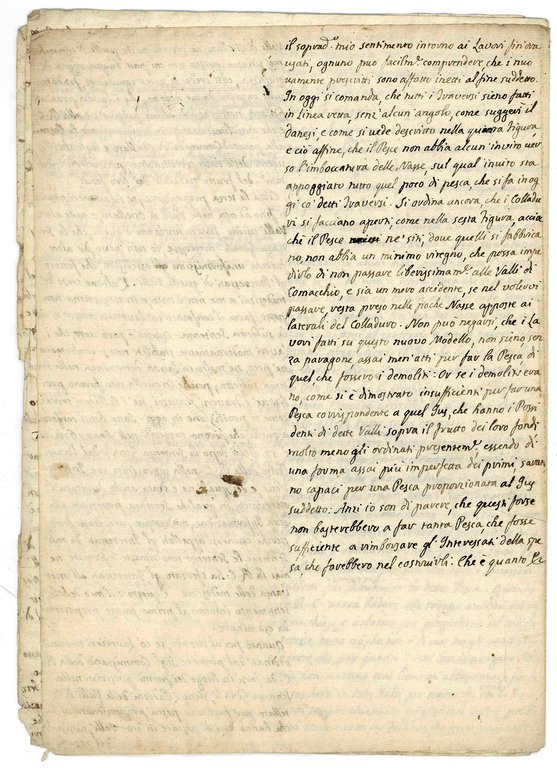 il soprad.º mio sentimento intorno ai Lavori fin'ora
usati, ognuno può facilm.e comprendere, che i nuo
vamente prescritti sono affatto inetti al fine suddetto.
In oggi si comanda, che tutti i Traversi sieno fatti
in linea retta, senz'alcun'angolo, come suggerì il
Danesi, e come si vede descritto nella quinta Figura,
e ciò affine, che il Pesce non abbia alcun'invito ver
so l'imboccatura delle Nasse, sul qual invito sta
appoggiato tutto quel poco di pesca, che si fa in og
gi co' detti Traversi. Si ordina ancora, che i Colladu
ri si facciano aperti, come nella sesta Figura, accio
chè il Pesce ne' siti, dove quelli si fabbrica
no, non abbia un minimo ritegno, che possa impe
dirlo di non passare liberissimam.e alle Valli di
Comacchio, e sia un mero accidente, se nel volervi
passare, resta preso nelle poche Nasse apposte ai
laterali del Colladuro. Non può negarsi, che i La
vori fatti su questo nuovo Modello, non sieno sen
za paragone assai men'atti per far la Pesca di
quel, che fossero i demoliti: Or se i demoliti era
no, come si è dimostrato insufficienti per far una
Pesca corrispondente a quel Jus, che hanno i Possi
denti di dette Valli sopra il frutto dei loro fondi
molto meno gli ordinati presentem.e essendo di
una forma assai più imperfetta dei primi, saran
no capaci per una Pesca proporzionata al Jus
suddetto: Anzi io son di parere, che questi forse
non basterebbero a far tanta Pesca, che fosse
sufficiente a rimborsare gl'Interessati della spe
sa, che farebbero nel costruirli. Che è quanto &c